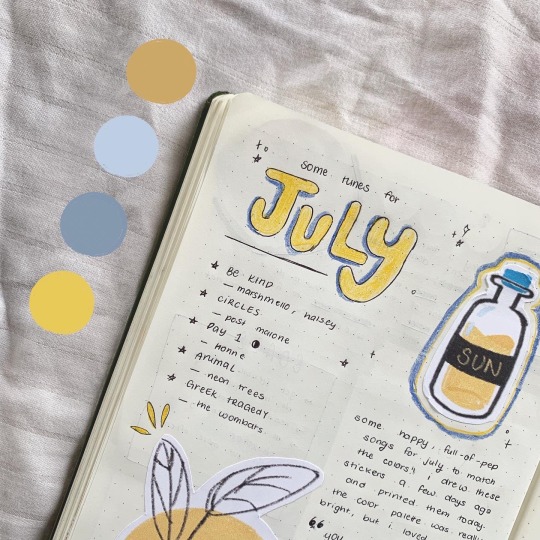 some tunes for
JULY
BE KIND
— marshmello, halsey
CIRCLES
— post malone
Day 1 ◑
— honne
ANIMAL
— neon trees
GREEK TRAGEDY
— the wombats
SUN
some happy, full-of-pep
songs for july to match
the colors! i drew these
stickers a few days ago
and printed them today.
the color palette was really
bright, but i loved
“
you